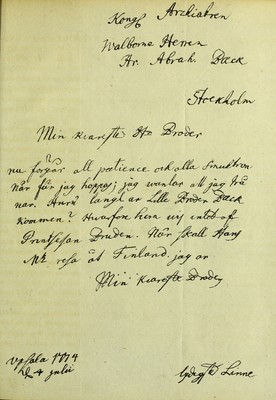 Kongl Archiatren
Walborne Herren
Hr. Abrah. Bäck
Stockholm
Min kiäreste Hr Broder
nu förgår all patience och alla
När får jag hoppas; jag wäntar att jag frå
når. Huru långt är Lille Broder Bäck
kommen? Hwarföre hörs wj intet af
Printsessan Bruden. När skall Hans
Mt resa åt Finland. jag är
Min kiäreste Broders
Upsala 1774
d. 4 julii
Linne